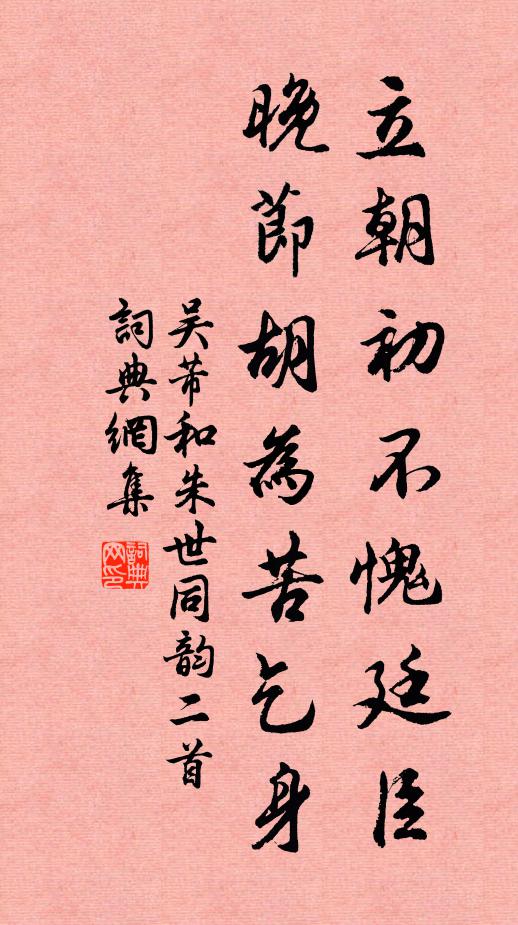 立朝初不愧廷臣
晚節胡為苦乞身
吴芾和朱世同韵二首
詞典網集
詞典网印